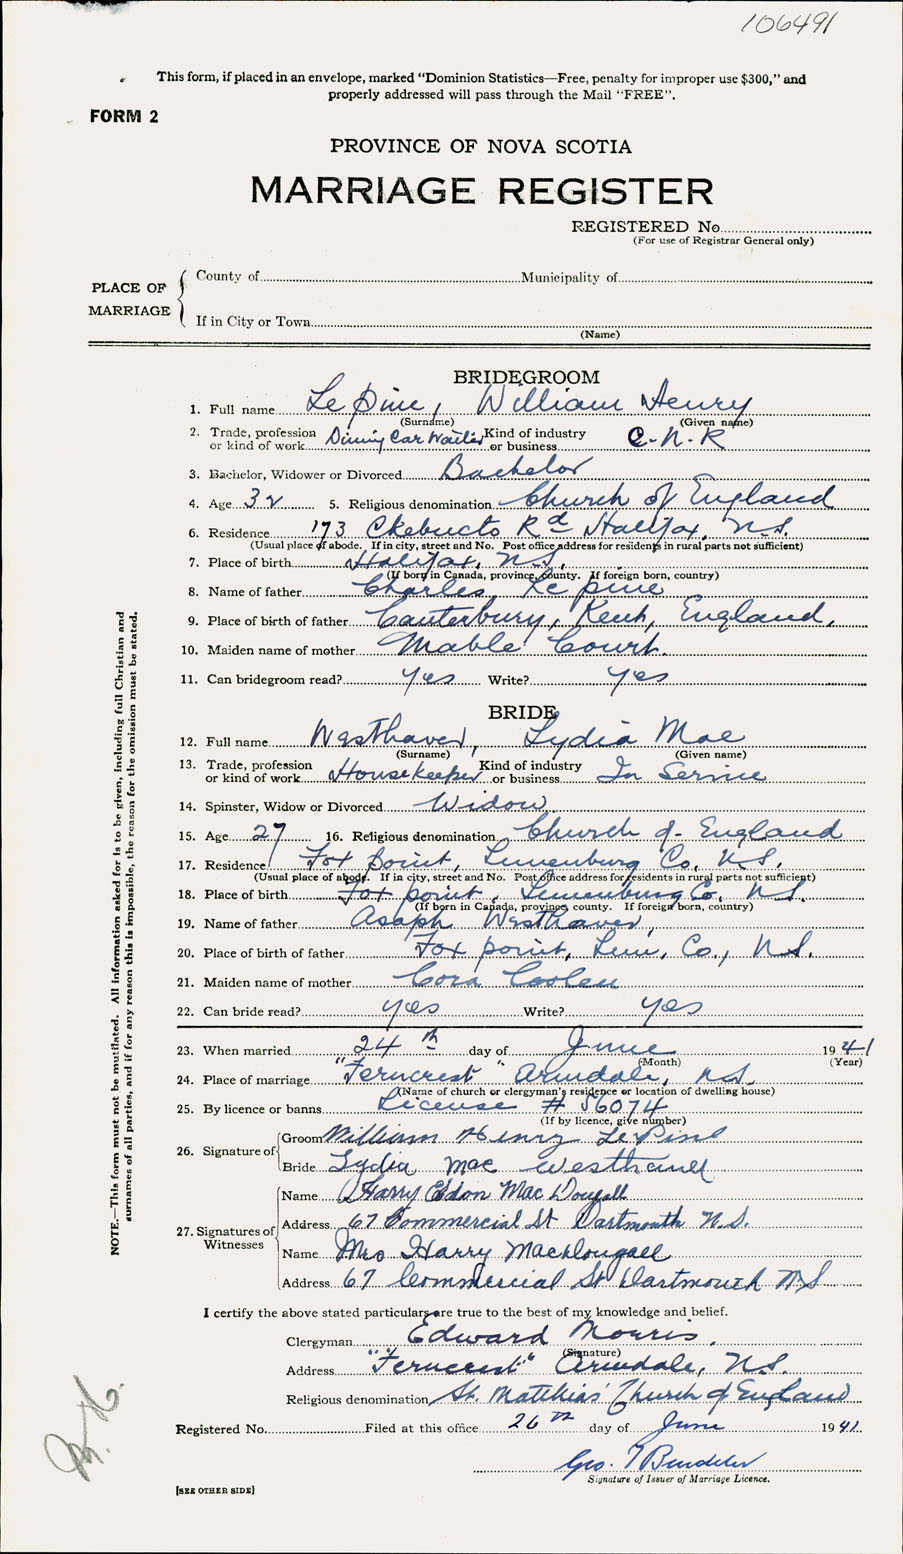 106491
This form, if placed in an envelope, marked "Dominion Statistics—Free, penalty for improper use $300," and
properly addressed will pass through the Mail "FREE".
FORM 2
PROVINCE OF NOVA SCOTIA
MARRIAGE REGISTER
REGISTERED No.
(For use of Registrar General only)
PLACE OF MARRIAGE
County of Municipality of
If in City or Town
(Name)
BRIDEGROOM
1. Full name Le Pine, William Henry
(Surname) (Given name)
2. Trade, profession or kind of work Dining Car Waiter Kind of industry or business C.N.R
3. Bachelor, Widower or Divorced Bachelor
4. Age 32 5. Religious denomination Church of England
6. Residence 173 Chebucto Rd Halifax, N.S.
(Usual place of abode. If in city, street and No. Post office address for residents in rural parts not sufficient)
7. Place of birth Halifax, N.S.
(If born in Canada, province, county. If foreign born, country)
8. Name of father Charles Le pine
9. Place of birth of father Canterbury, Kent, England.
10. Maiden name of mother Mable Court.
11. Can bridegroom read? yes Write? yes
BRIDE
12. Full name Westhaver, Lydia Mae
(Surname) (Given name)
13. Trade, profession or kind of work Housekeeper Kind of industry or business In Service
14. Spinster, Widow or Divorced Widow
15. Age 27 16. Religious denomination Church of England
17. Residence Fox point, Lunenburg Co, N.S.
(Usual place of abode. If in city, street and No. Post office address for residents in rural parts not sufficient)
18. Place of birth Fox point, Lunenburg Co, N.S.
(If born in Canada, province county. If foreign born, country)
19. Name of father Asaph Westhaver,
20. Place of birth of father Fox point, Lun, Co., N.S.
21. Maiden name of mother Cora Coolen
22. Can bride read? yes Write? yes
23. When married 24th day of June 1941
(Month) (Year)
24. Place of marriage "Ferncrest" Armdale, N.S.
(Name of church or clergyman's residence or location of dwelling house)
25. By licence or banns License # 56074
(If by licence, give number)
26. Signature of
Groom William Henry LePine
Bride Lydia Mae Westhaver
27. Signatures of Witnesses
Name Harry Eldon MacDougall
Address 67 Commercial St Dartmouth N.S.
Name Mrs Harry MacDougall
Address 67 Commercial St Dartmouth NS
I certify the above stated particulars are true to the best of my knowledge and belief.
Clergyman Edward Morris.
(Signature)
Address "Ferncrest" Armdale, N.S.
Religious denomination St. Matthias' Church of England
Registered No. Filed at this office 26th day of June 1941.
Geo.
Signature of Issuer of Marriage Licence.
[SEE OTHER SIDE]
NOTE.—This form must not be mutilated. All information asked for is to be given, including full Christian and
surnames of all parties, and if for any reason this is impossible, the reason for the omission must be stated.